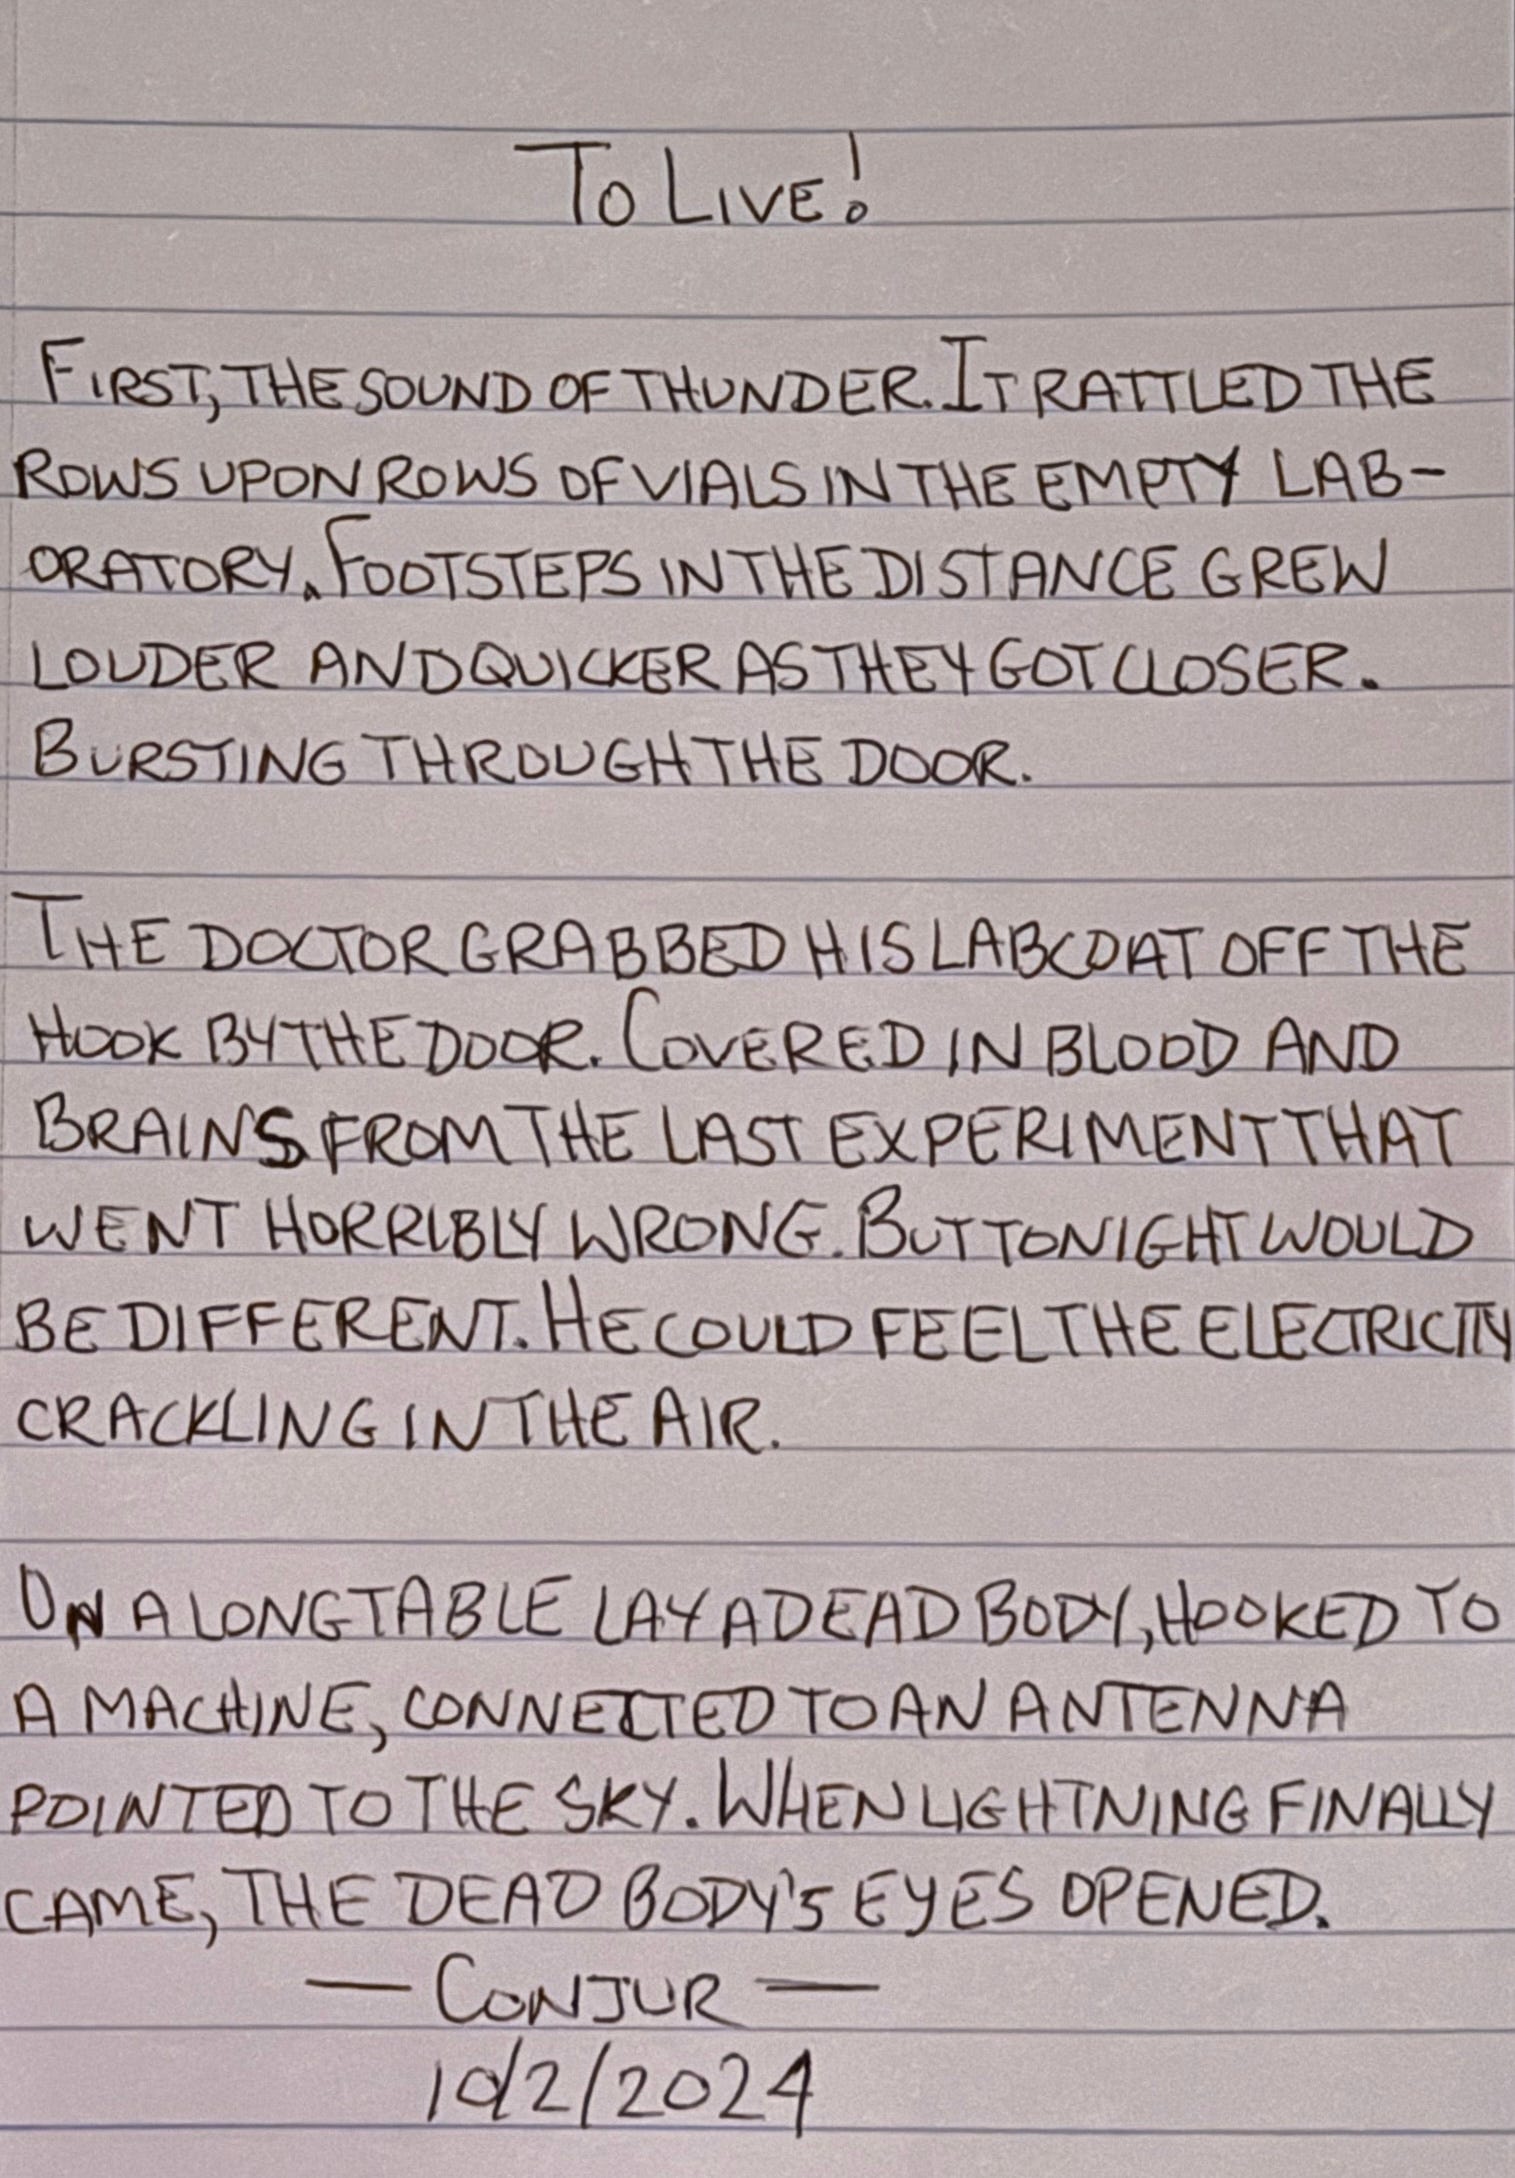 To Live!
First, the sound of thunder. It rattled the
rows upon rows of vials in the empty lab-
oratory. Footsteps in the distance grew
louder and quicker as they got closer.
Bursting through the door.
The doctor grabbed his labcoat off the
hook by the door. Covered in blood and
brains from the last experiment that
went horribly wrong. But tonight would
be different. He could feel the electricity
crackling in the air.
On a long table lay a dead body, hooked to
a machine, connected to an antenna
pointed to the sky. When lightning finally
came, the dead body's eyes opened.
— Conjur —
10/2/2024